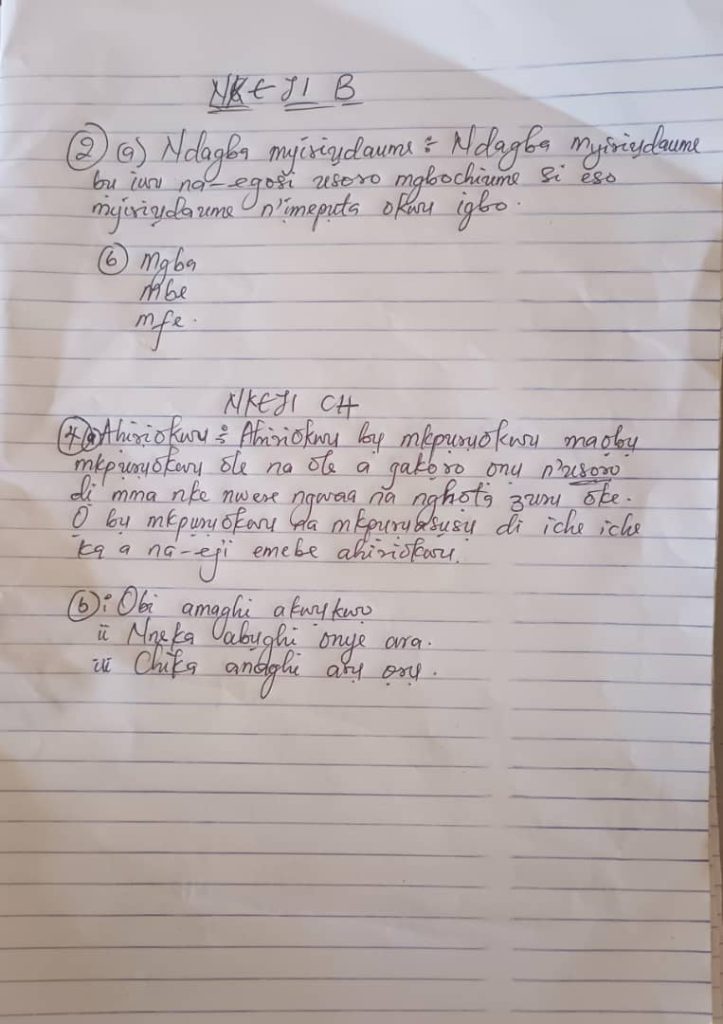 NKEJI B
② (a) Ndagba myiriụdaume : Ndagba myiriụdaume
bu iwu na-egosi usoro mgbochiume si eso
myiriụdaume n'imepụta okwu igbo.
(b) Mgba
mbe
mfe.
NKEJI CH
4(a) Ahiriokwu : Ahiriokwu bụ mkpụrụokwu maọbụ
mkpụrụokwu ole na ole a gakọrọ ọnụ n'usoro
dị mma nke nwere ngwaa na nghọta zuru oke.
Ọ bụ mkpụrụokwu na mkpụrụasụsụ dị iche iche
ka a na-eji emebe ahiriokwu.
(b) i Obi amaghi akwụkwọ
ii Nneka abụghi onye ara.
iii Chika anaghi arụ ọrụ.